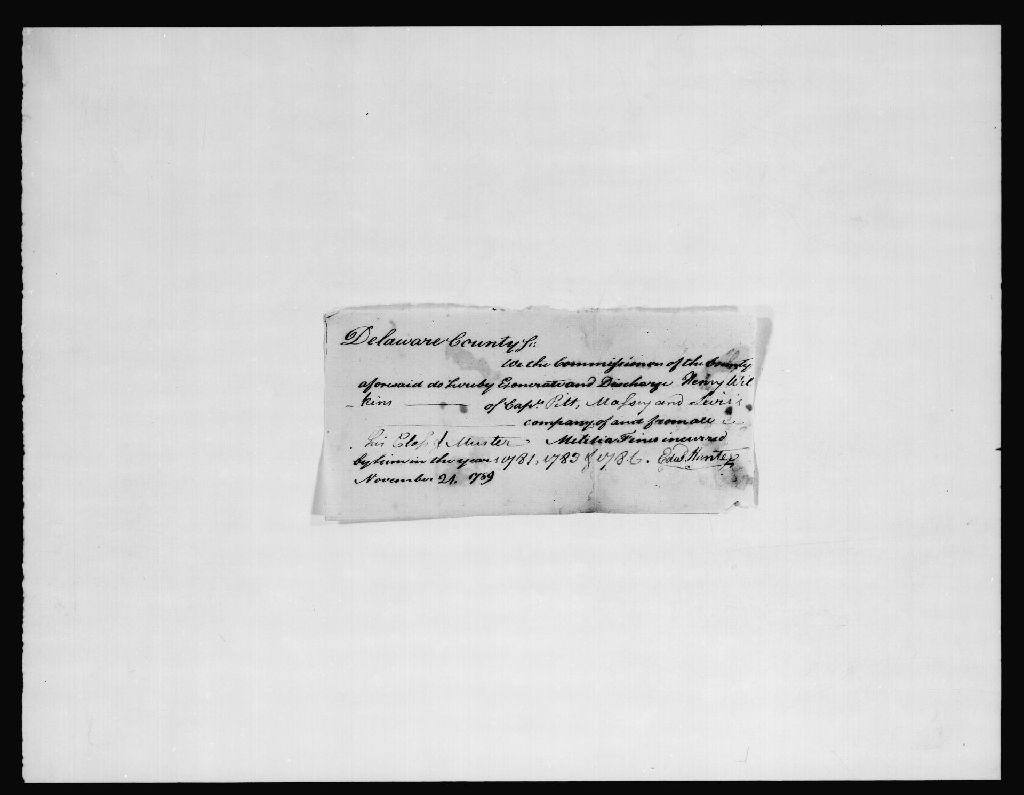 Delaware County Ss:
We the Commissioners of the County
aforesaid do hereby Exonerate and Discharge Henry Wil
kins of Capt. Pitt, Massey and Lewis's
company, of and from all
his Class & Muster Melitia Fines incurred
by him in the years 1781, 1783 &
Edwd. Hunter
November 24. 1789